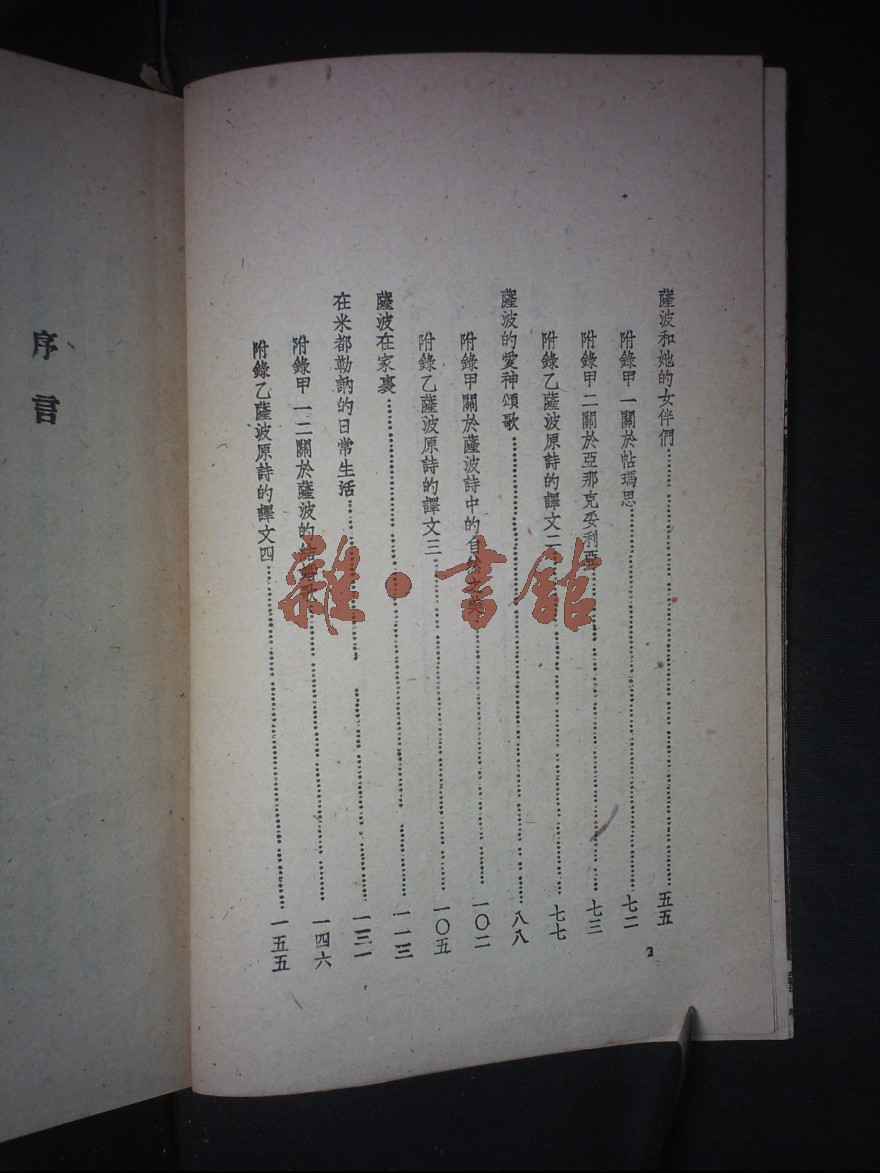 薩波和她的女伴們……五五
附錄甲一關於帖瑪思……七二
附錄甲二關於亞那克妥利亞……七三
附錄乙薩波原詩的譯文二……七七
薩波的愛神頌歌……八八
附錄甲關於薩波詩中的自然之美……一〇二
附錄乙薩波原詩的譯文三……一〇五
薩波在家裏……一一三
在米都勒訥的日常生活……一三一
附錄甲一二關於薩波的結婚歌……一四六
附錄乙薩波原詩的譯文四……一五五
2
序言
雜·書館